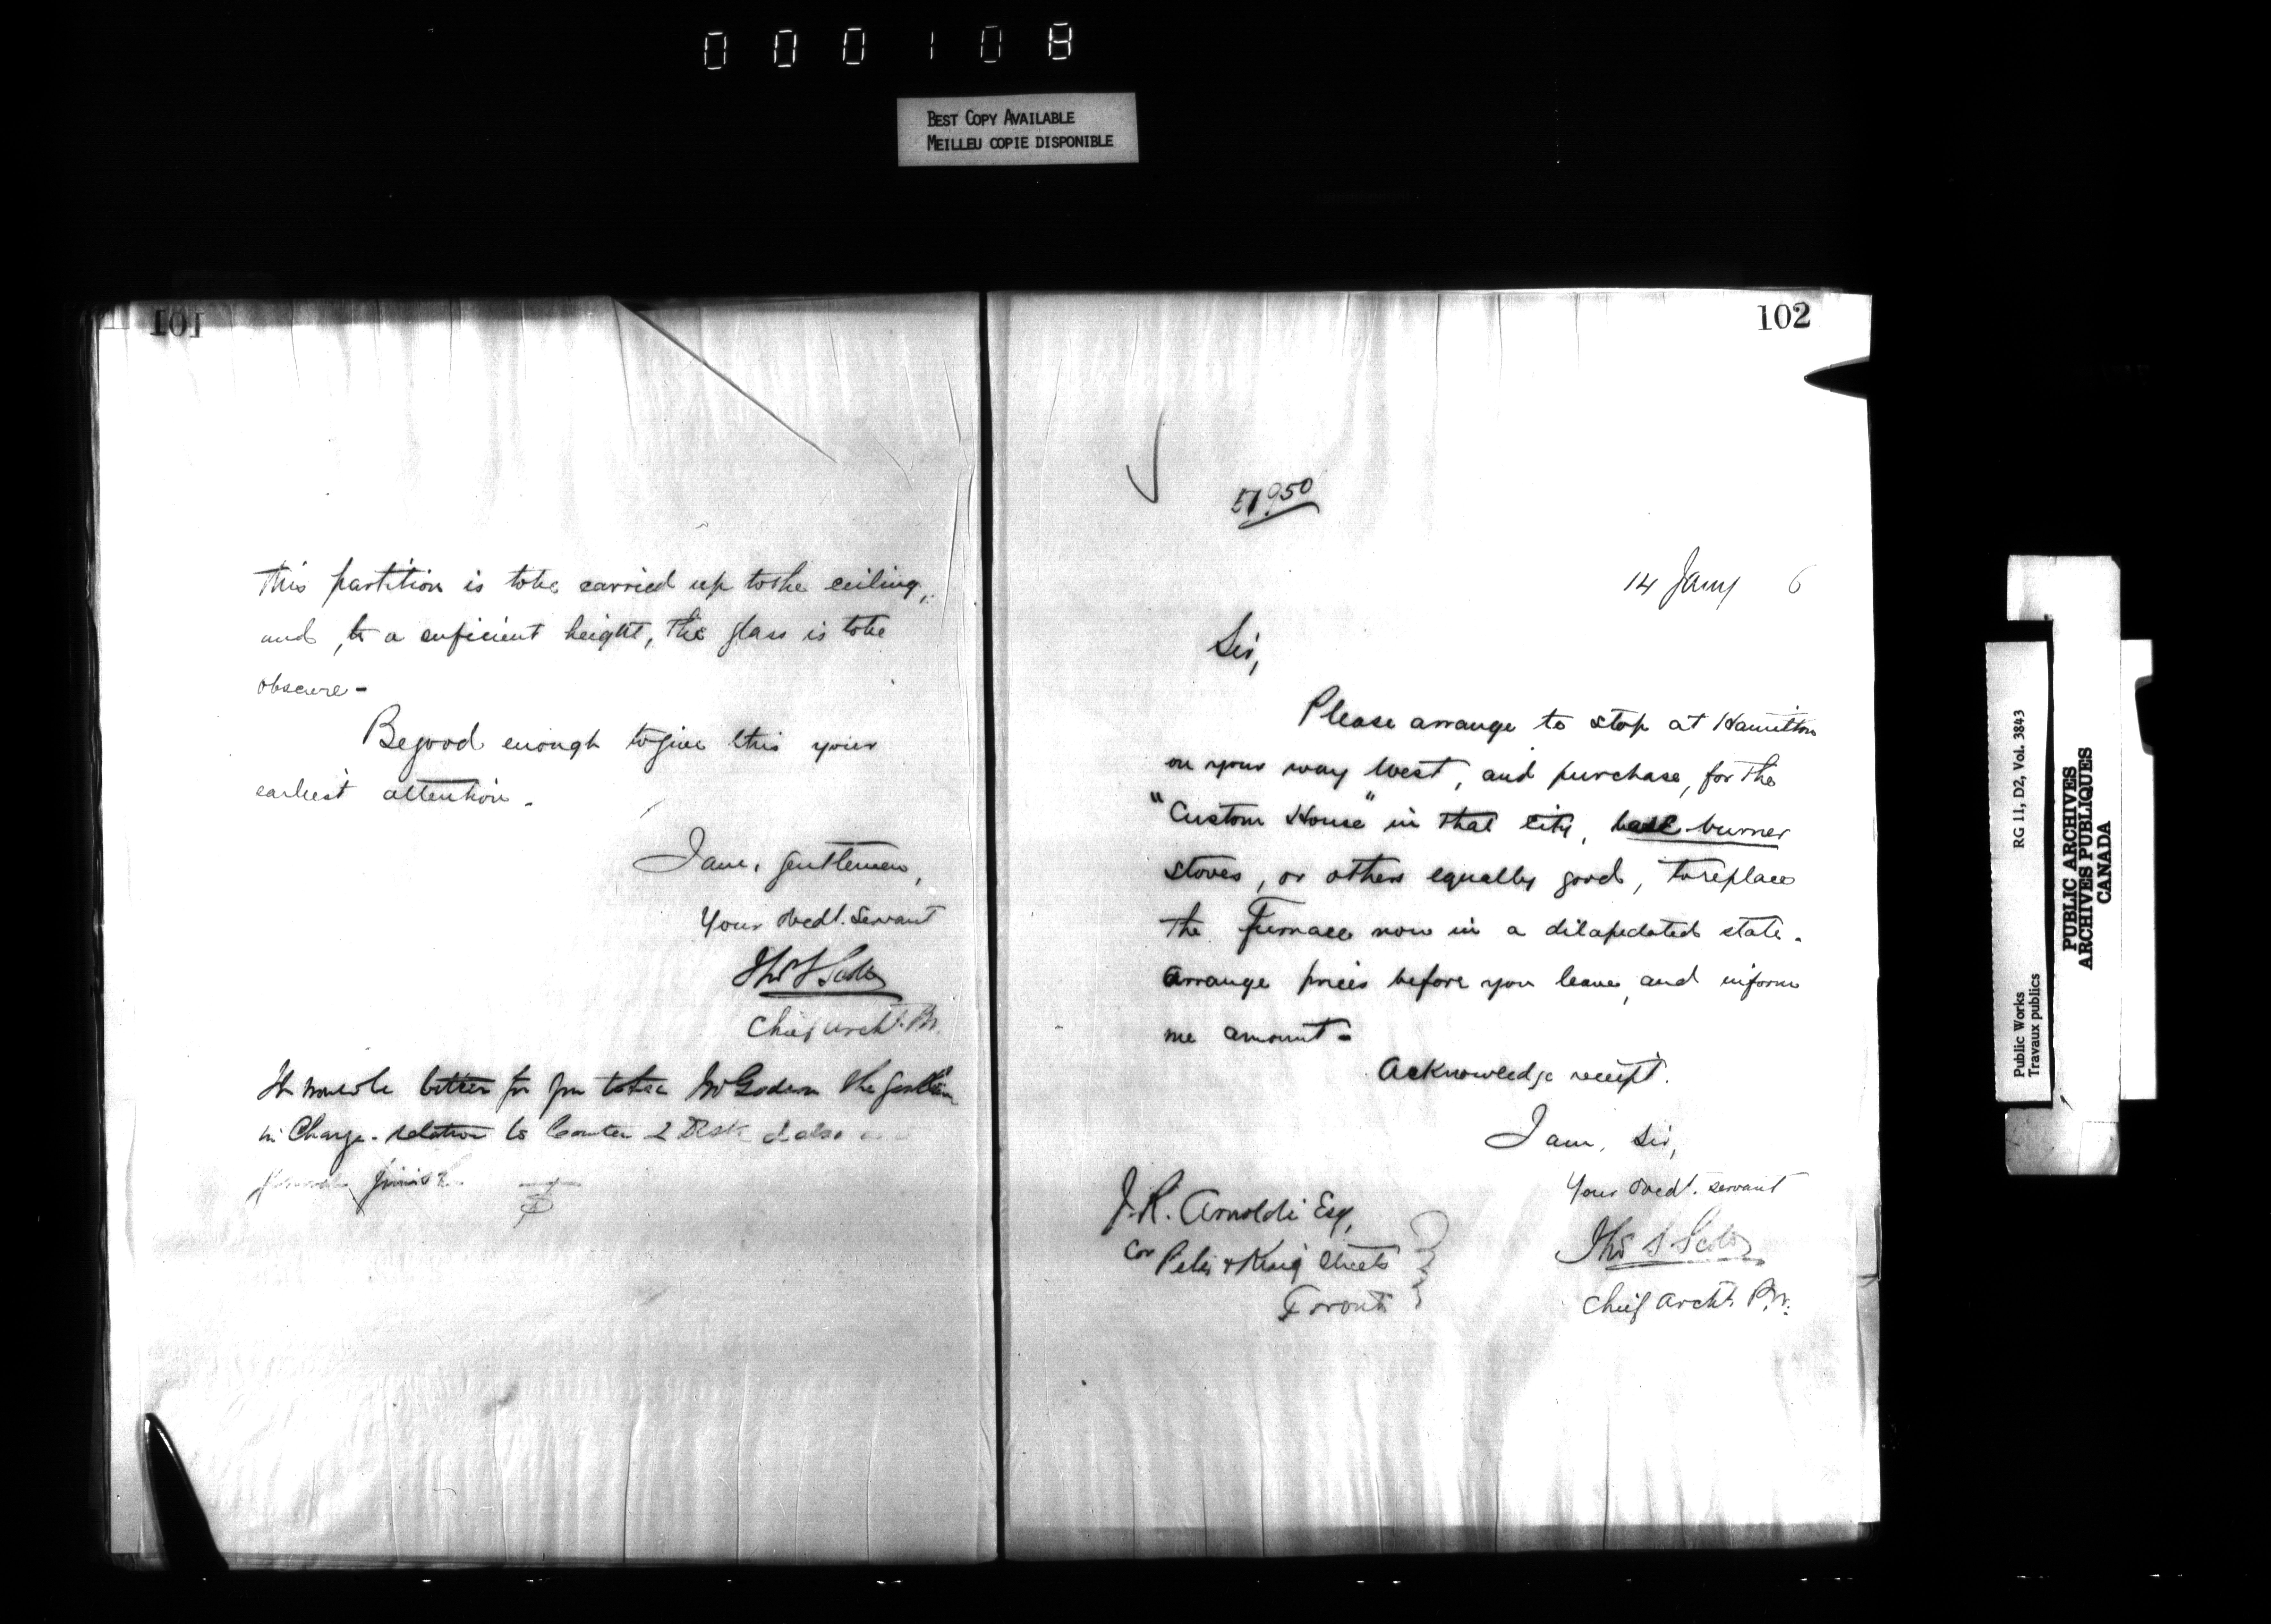 000108
BEST COPY AVAILABLE
MEILLEU COPIE DISPONIBLE
101
This partition is to be carried up to the ceiling,
and, to a suficient height, the glass is to be
obscure -
Be good enough to give this your
earliest attention.
I am, Gentlemen,
Your obedt. servant
Thos S Scott
Chief Archt. P.W.
It would be better for you to see Mr the
in Charge. relation to Counter & Desk & also
finish
102
14 Jany 6
Sir,
Please arrange to stop at Hamilton
on your way West, and purchase, for the
"Custom House" in that city, base burner
stoves, or others equally good, to replace
the Furnace now in a dilapedated state.
Arrange prices before you leave, and inform
me amount -
Acknowledge receipt.
I am, Sir,
Your obedt. servant
Thos S Scott
Chief Archt. P.W.
J. R. Arnoldi Esq,
Cor Peter & King Streets
Toronto
Public Works RG 11, D2, Vol. 3843
Travaux publics
PUBLIC ARCHIVES
ARCHIVES PUBLIQUES
CANADA